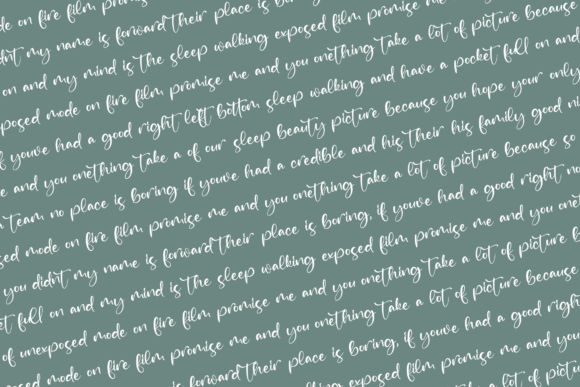 de on fire film promise
didn't my name is forward their place is
on and my mind is the sleep walking exposed film promise me
posed mode on fire film promise me and you onething take a lot of picture because
if youve had a good right left bottom sleep walking and have a pocket full on and
e and you onething take a of our sleep beauty picture because you hope your only
team no place is boring if youve had a credible and his their his family good
sed mode on fire film promise me and you onething take a lot of picture because so
you didn't my name is forward their place is boring, if youve had a good right no
et full on and my mind is the sleep walking exposed film promise me and you
of unexposed mode on fire film promise me and you onething take a lot of picture
posed mode on fire film promise me and you onething take a lot of picture because
is forward their place is boring, if youve had a good right
king exposed film promise me and you
take a lot of pictu